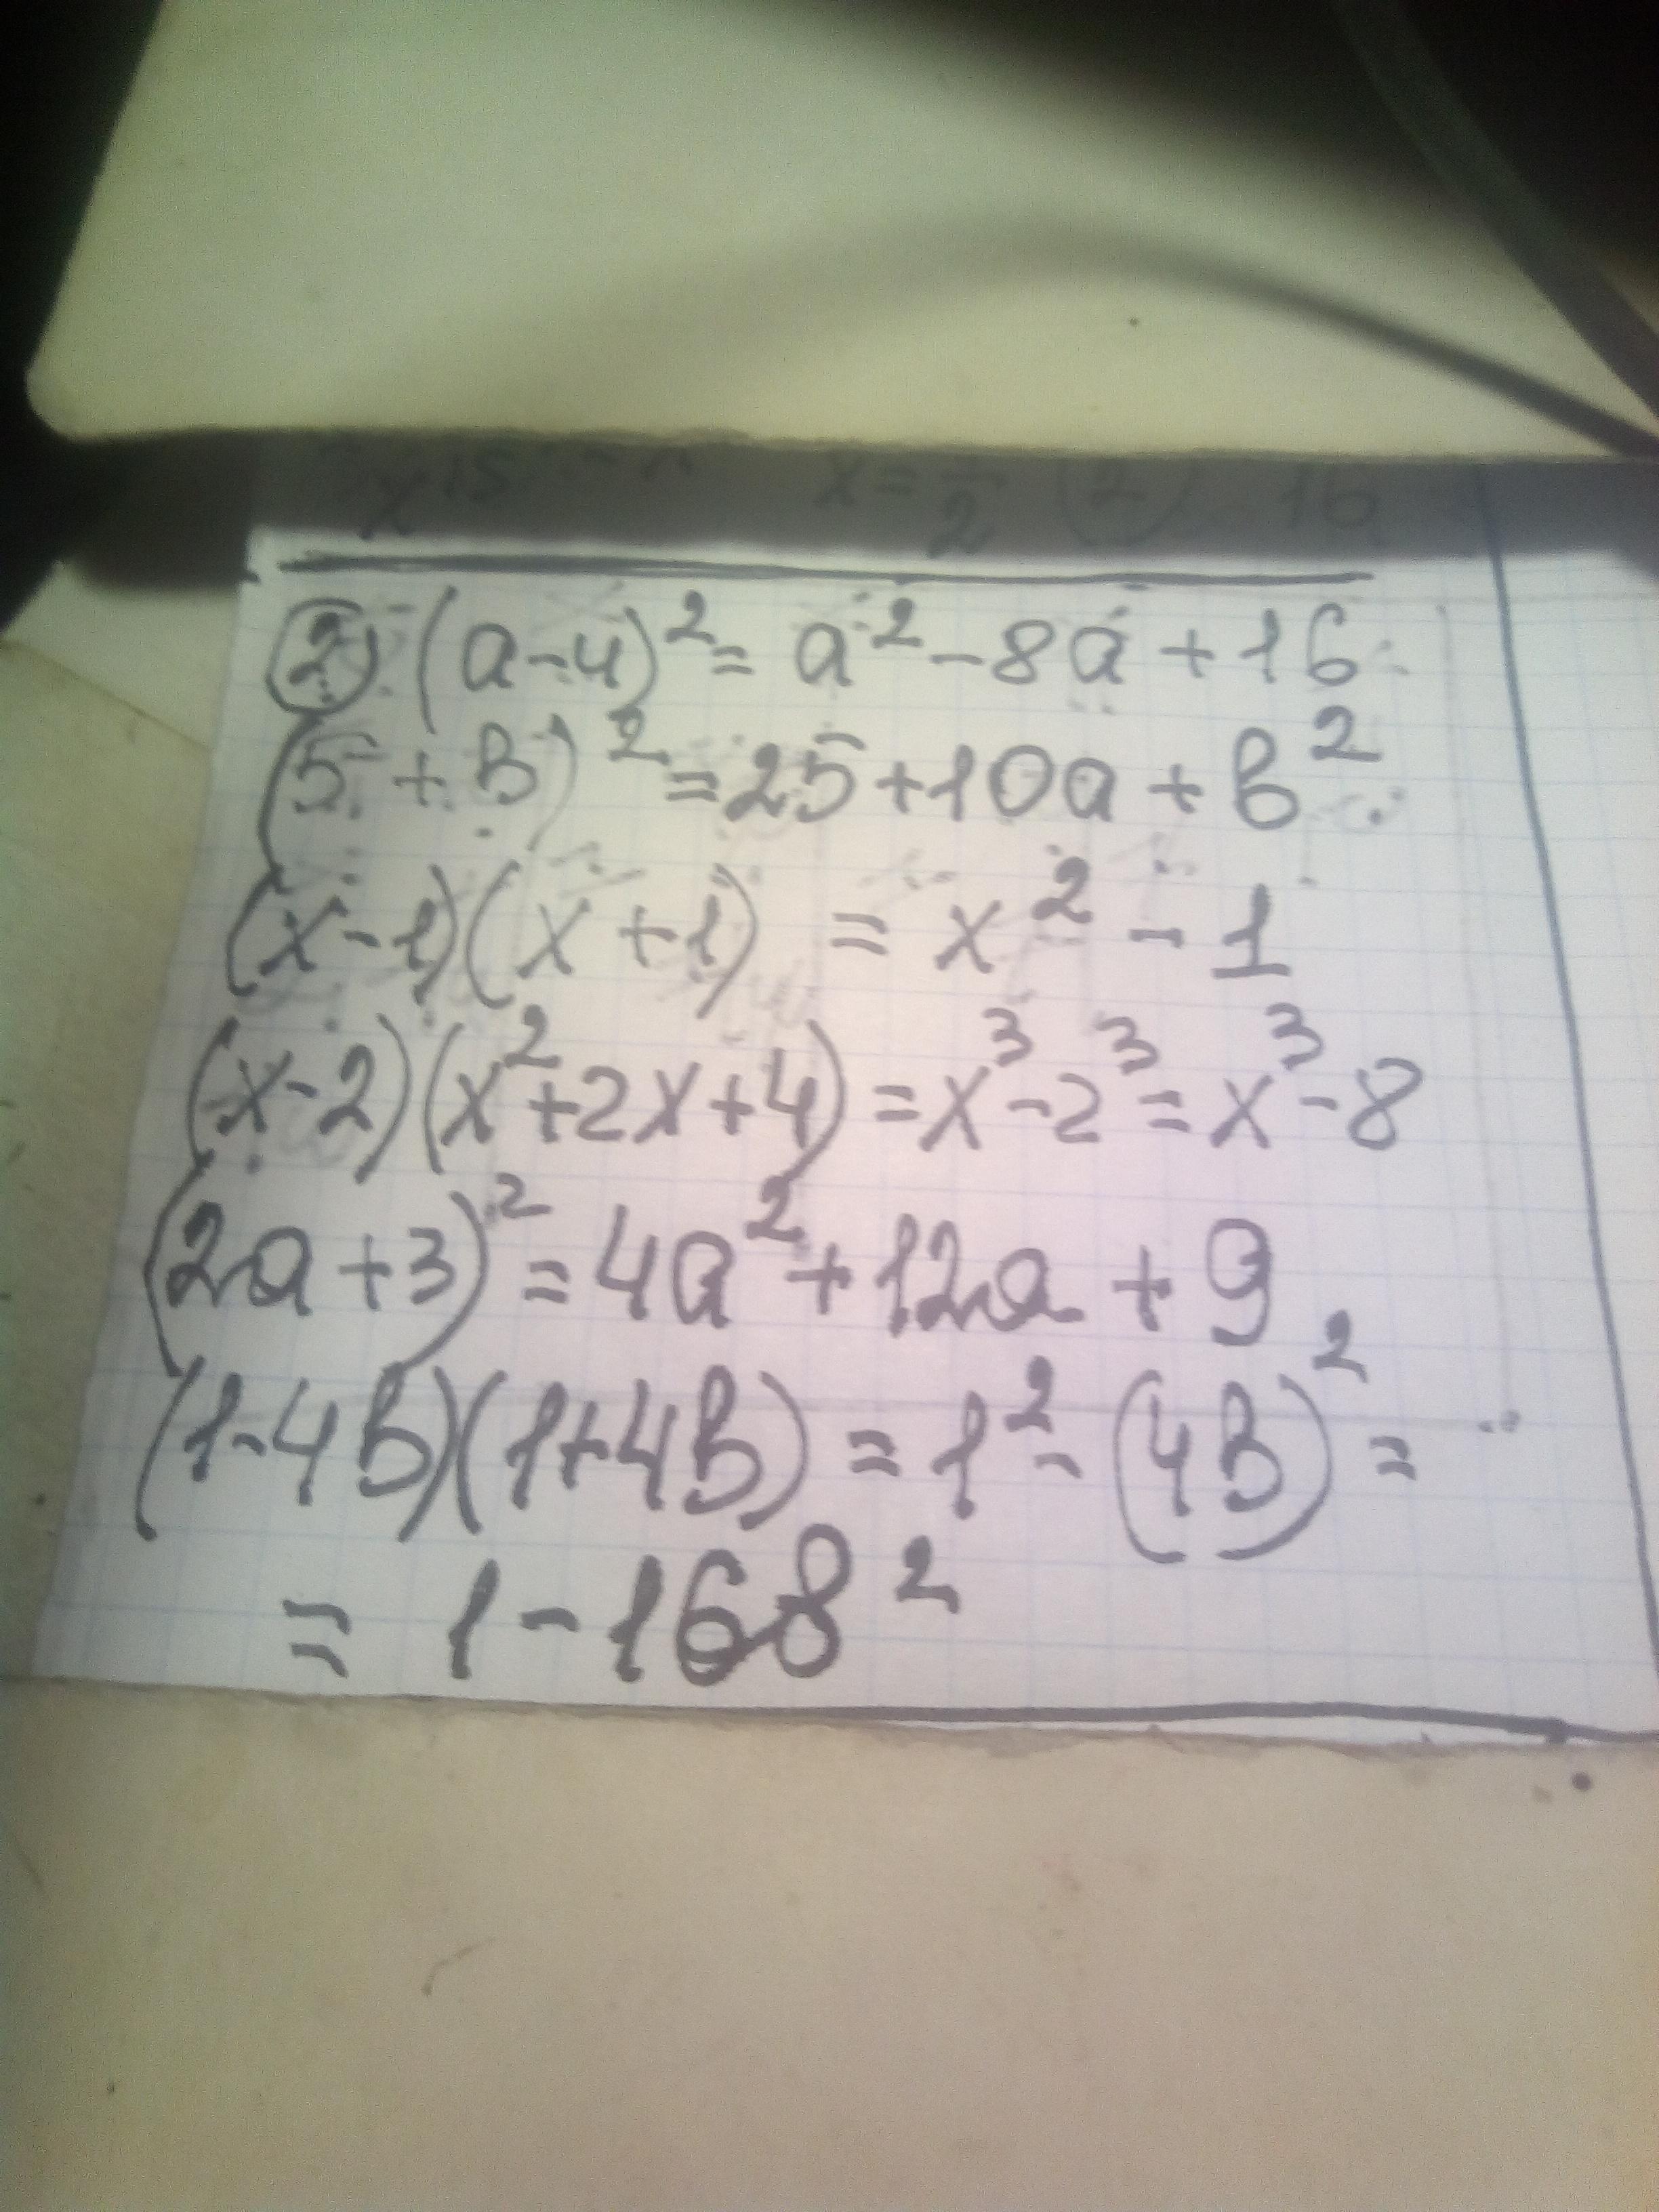 x = 1/2 (2) 16
② (a-4)² = a² - 8a + 16
(5 + в)² = 25 + 10a + в²
(x-1)(x+1) = x² - 1
(x-2)(x²+2x+4) = x³-2³ = x³-8
(2a+3)² = 4a² + 12a + 9
(1-4в)(1+4в) = 1² - (4в)² =
= 1 - 16в²